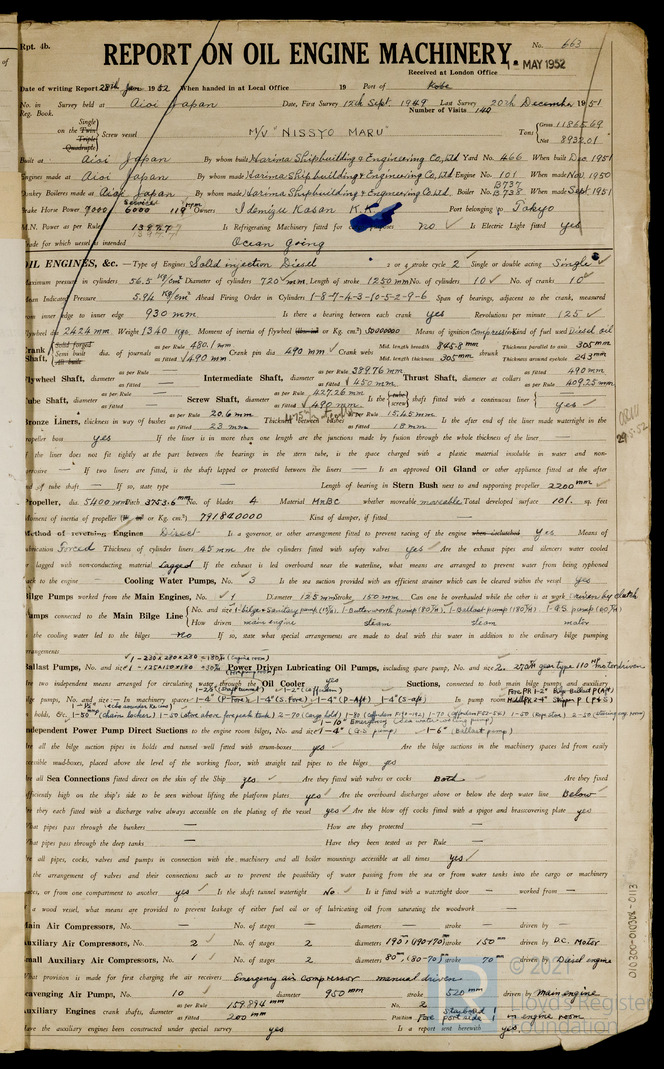 Rpt. 4b.
No. 663
REPORT ON OIL ENGINE MACHINERY.
Received at London Office
MAY 1952
Date of writing Report 28th Jan. 1952 When handed in at Local Office 19 Port of Kobe
No. in Survey held at Aioi Japan Date, First Survey 12th Sept. 1949 Last Survey 20th December 1951
Reg. Book. Number of Visits 140
Single
on the Twin Triple Quadruple Screw vessel M/V "NISSYO MARU" Tons Gross 11865.69
Net 8932.01
Built at Aioi Japan By whom built Harima Shipbuilding & Engineering Co., Ltd Yard No. 466 When built Dec. 1951
Engines made at Aioi Japan By whom made Harima Shipbuilding & Engineering Co., Ltd Engine No. 101 When made Nov. 1950
Donkey Boilers made at Aioi, Japan By whom made Harima Shipbuilding & Engineering Co. Ltd. Boiler No. B737 B738 When made Sept. 1951
Brake Horse Power 7000 Service 6000 119 rpm Owners Idemizu Kasan K.K. Port belonging to Tokyo
M.N. Power as per Rule Is Refrigerating Machinery fitted for no Is Electric Light fitted yes
Trade for which vessel is intended Ocean going
OIL ENGINES, &c.—Type of Engines Solid injection Diesel 2 or 4 stroke cycle 2 Single or double acting Single
Maximum pressure in cylinders 56.5 kg/cm² Diameter of cylinders 720 mm. Length of stroke 1250 mm No. of cylinders 10 No. of cranks 10
Mean Indicated Pressure 5.94 kg/cm² Ahead Firing Order in Cylinders 1-8-7-4-3-10-5-2-9-6 Span of bearings, adjacent to the crank, measured
from inner edge to inner edge 930 mm Is there a bearing between each crank yes Revolutions per minute 125
Flywheel dia. 2424 mm. Weight 1340 kgs. Moment of inertia of flywheel (lbs. in² or Kg. cm²) 50000000 Means of ignition Compression Kind of fuel used Diesel oil
Crank Shaft, Solid forged Semi built All built dia. of journals as per Rule 480.1 mm as fitted 490 mm Crank pin dia. 490 mm Crank webs Mid. length breadth 845.8 mm Mid. length thickness 305 mm shrunk Thickness parallel to axis 305 mm Thickness around eyehole 243 mm
Flywheel Shaft, diameter as per Rule — as fitted — Intermediate Shaft, diameter as per Rule 389.76 mm as fitted 450 mm Thrust Shaft, diameter at collars as per Rule 409.25 mm as fitted 490 mm
Tube Shaft, diameter as per Rule — as fitted — Screw Shaft, diameter as per Rule 427.26 mm as fitted 490 mm Is the tube screw shaft fitted with a continuous liner yes
Bronze Liners, thickness in way of bushes as per Rule 20.6 mm as fitted 23 mm Thickness between bushes as per Rule 15.45 mm as fitted 18 mm Is the after end of the liner made watertight in the
propeller boss yes If the liner is in more than one length are the junctions made by fusion through the whole length of the liner —
If the liner does not fit tightly at the part between the bearings in the stern tube, is the space charged with a plastic material insoluble in water and non-
corrosive — If two liners are fitted, is the shaft lapped or protected between the liners — Is an approved Oil Gland or other appliance fitted at the after
end of tube shaft — If so, state type — Length of bearing in Stern Bush next to and supporting propeller 2200 mm
Propeller, dia. 5400 mm Pitch 3753.6 mm No. of blades 4 Material MnBC whether moveable moveable Total developed surface 101. sq. feet
Moment of inertia of propeller (lbs. in² or Kg. cm²) 791840000 Kind of damper, if fitted —
Method of reversing Engines Direct Is a governor or other arrangement fitted to prevent racing of the engine when declutched yes Means of
lubrication Forced Thickness of cylinder liners 45 mm Are the cylinders fitted with safety valves yes Are the exhaust pipes and silencers water cooled
or lagged with non-conducting material Lagged If the exhaust is led overboard near the waterline, what means are arranged to prevent water from being syphoned
back to the engine — Cooling Water Pumps, No. 3 Is the sea suction provided with an efficient strainer which can be cleared within the vessel yes
Bilge Pumps worked from the Main Engines, No. 1 Diameter 125 mm Stroke 150 mm Can one be overhauled while the other is at work (driven by clutch
Pumps connected to the Main Bilge Line No. and size 1-bilge & sanitary pump 1-Butterworth pump (80 T/h) 1-Ballast pump (180 T/h) 1-G.S. pump (60 T/h)
How driven main engine steam steam motor
Is the cooling water led to the bilges no If so, state what special arrangements are made to deal with this water in addition to the ordinary bilge pumping
arrangements
Ballast Pumps, No. and size Power Driven Lubricating Oil Pumps, including spare pump, No. and size 2 gear type 110 HP motor driven
Are two independent means arranged for circulating water through the Oil Cooler yes Suctions, connected to both main bilge pumps and auxiliary
bilge pumps, No. and size:—In machinery spaces 1-4" (P-Fore) 1-4" (S.Fore) 1-4" (P-Aft) 1-4" (S-aft) In pump room
Independent Power Pump Direct Suctions to the engine room bilges, No. and size 1-4" (G.S pump) 1-6" (Ballast pump)
Are all the bilge suction pipes in holds and tunnel well fitted with strum-boxes yes Are the bilge suctions in the machinery spaces led from easily
accessible mud-boxes, placed above the level of the working floor, with straight tail pipes to the bilges yes
Are all Sea Connections fitted direct on the skin of the Ship yes Are they fitted with valves or cocks Both Are they fixed
sufficiently high on the ship's side to be seen without lifting the platform plates yes Are the overboard discharges above or below the deep water line Below
Are they each fitted with a discharge valve always accessible on the plating of the vessel yes Are the blow off cocks fitted with a spigot and brass covering plate yes
What pipes pass through the bunkers — How are they protected —
What pipes pass through the deep tanks — Have they been tested as per Rule —
Are all pipes, cocks, valves and pumps in connection with the machinery and all boiler mountings accessible at all times yes
Is the arrangement of valves and their connections such as to prevent the possibility of water passing from the sea or from water tanks into the cargo or machinery
spaces, or from one compartment to another yes Is the shaft tunnel watertight No. Is it fitted with a watertight door — worked from —
If a wood vessel, what means are provided to prevent leakage of either fuel oil or of lubricating oil from saturating the woodwork —
Main Air Compressors, No. — No. of stages — diameters — stroke — driven by —
Auxiliary Air Compressors, No. 2 No. of stages 2 diameters 190, (190-170) stroke 150 mm driven by D.C. Motor
Small Auxiliary Air Compressors, No. 1 No. of stages 2 diameters 80 mm, (80-70) stroke 70 mm driven by Diesel engine
What provision is made for first charging the air receivers Emergency air compressor manual driven
Scavenging Air Pumps, No. 10 diameter 950 mm stroke 520 mm driven by Main engine
Auxiliary Engines crank shafts, diameter as per Rule 159.894 mm as fitted 200 mm No. 2 Position Starboard 1 Fore port side 1 in engine room
Have the auxiliary engines been constructed under special survey yes Is a report sent herewith yes.
29.5.52
010300-010308-0113
© 2021
Lloyd's Register
Foundation